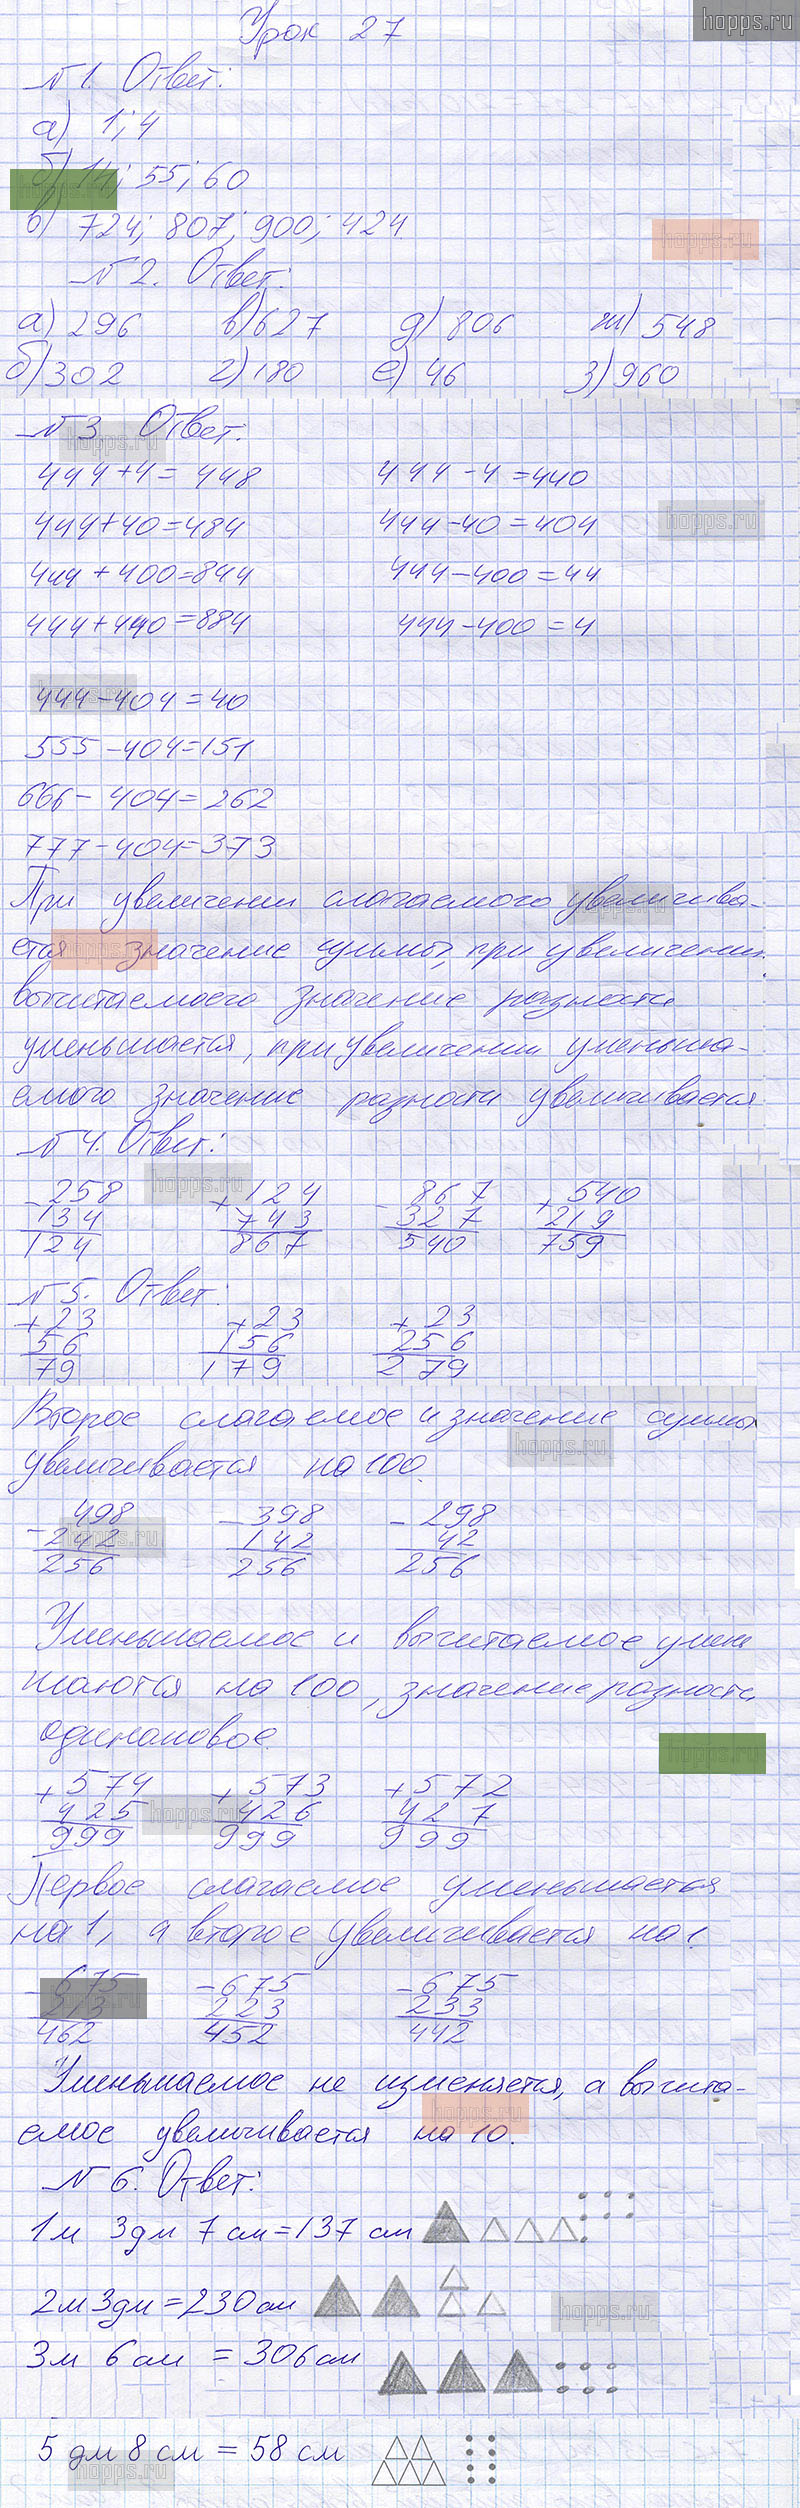 hopps.ru
Урок 27
№ 1. Ответ:
а) 1; 4
б) 14; 55; 60
hopps.ru
в) 724; 807; 900; 424
hopps.ru
№ 2. Ответ:
а) 296 в) 627 д) 806 ж) 548
б) 302 г) 180 е) 46 з) 960
№ 3 Ответ:
hopps.ru
444 + 4 = 448 444 - 4 = 440
444 + 40 = 484 444 - 40 = 404
hopps.ru
444 + 400 = 844 444 - 400 = 44
444 + 440 = 884 444 - 400 = 4
hopps.ru
444 - 404 = 40
555 - 404 = 151
666 - 404 = 262
777 - 404 = 373
При увеличении слагаемого увеличива-
hopps.ru
ется значение суммы, при увеличении
hopps.ru
вычитаемоего значение разности
уменьшается, при увеличении уменьша-
емого значение разности увеличивается
№ 4. Ответ:
hopps.ru
- 258 + 124 - 867 + 540
134 743 327 219
124 867 540 759
№ 5. Ответ:
+ 23 + 23 + 23
56 156 256
79 179 279
Второе слагаемое и значение суммы
hopps.ru
увеличивается на 100.
- 498 - 398 - 298
hopps.ru
242 142 42
256 256 256
Уменьшаемое и вычитаемое умень
шаются на 100, значение разности
одинаковое.
hopps.ru
+ 574 + 573 + 572
hopps.ru
425 426 427
999 999 999
Первое слагаемое уменьшается
на 1, а второе увеличивается на 1.
- 675 - 675 - 675
hopps.ru
213 223 233
462 452 442
Уменьшаемое не изменяется, а вычита-
hopps.ru
емое увеличивается на 10.
№ 6. Ответ:
1 м 3 дм 7 см = 137 см
2 м 3 дм = 230 см
hopps.ru
3 м 6 см = 306 см
5 дм 8 см = 58 см
hopps.ru